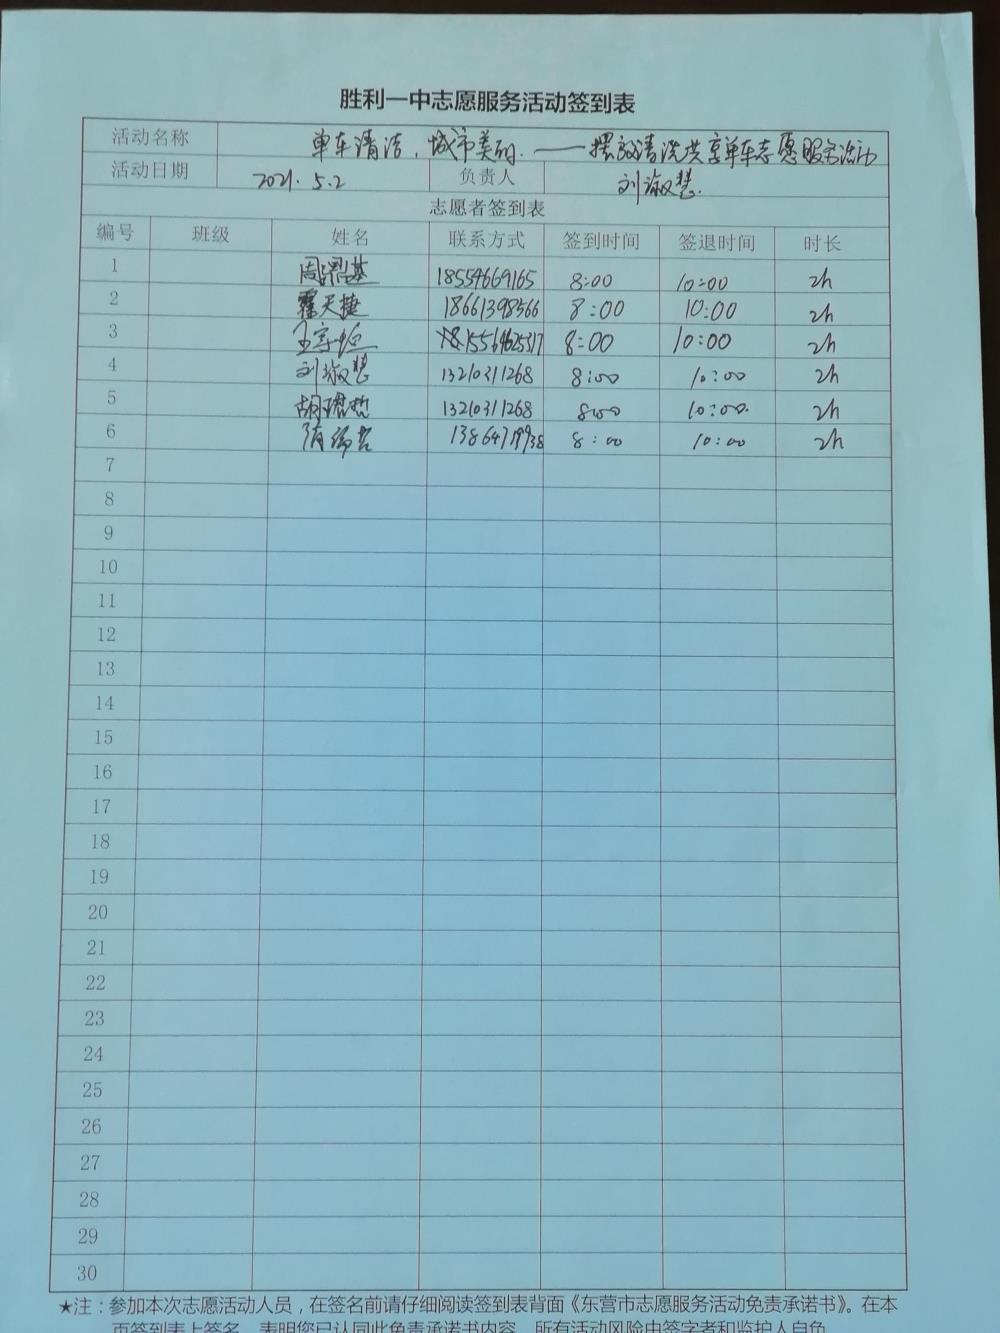 胜利一中志愿服务活动签到表
活动名称 单车清洁，城市美丽. ——摆放清洗共享单车志愿服务活动
活动日期 2021. 5.2 负责人 刘淑慧.
志愿者签到表
编号 班级 姓名 联系方式 签到时间 签退时间 时长
1 周鼎基 18554669165 8:00 10:00 2h
2 霍天捷 18661398566 8:00 10:00 2h
3 王宇恒 8:00 10:00 2h
4 刘淑慧 13210311268 8:00 10:00 2h
5 胡珺哲 13210311268 8:00 10:00. 2h
6 隋 8:00 10:00 2h
7
8
9
10
11
12
13
14
15
16
17
18
19
20
21
22
23
24
25
26
27
28
29
30
★注：参加本次志愿活动人员，在签名前请仔细阅读签到表背面《东营市志愿服务活动免责承诺书》。在本
页签到表上签名，表明您已认同此免责承诺书内容，所有活动风险由签字者和监护人自负